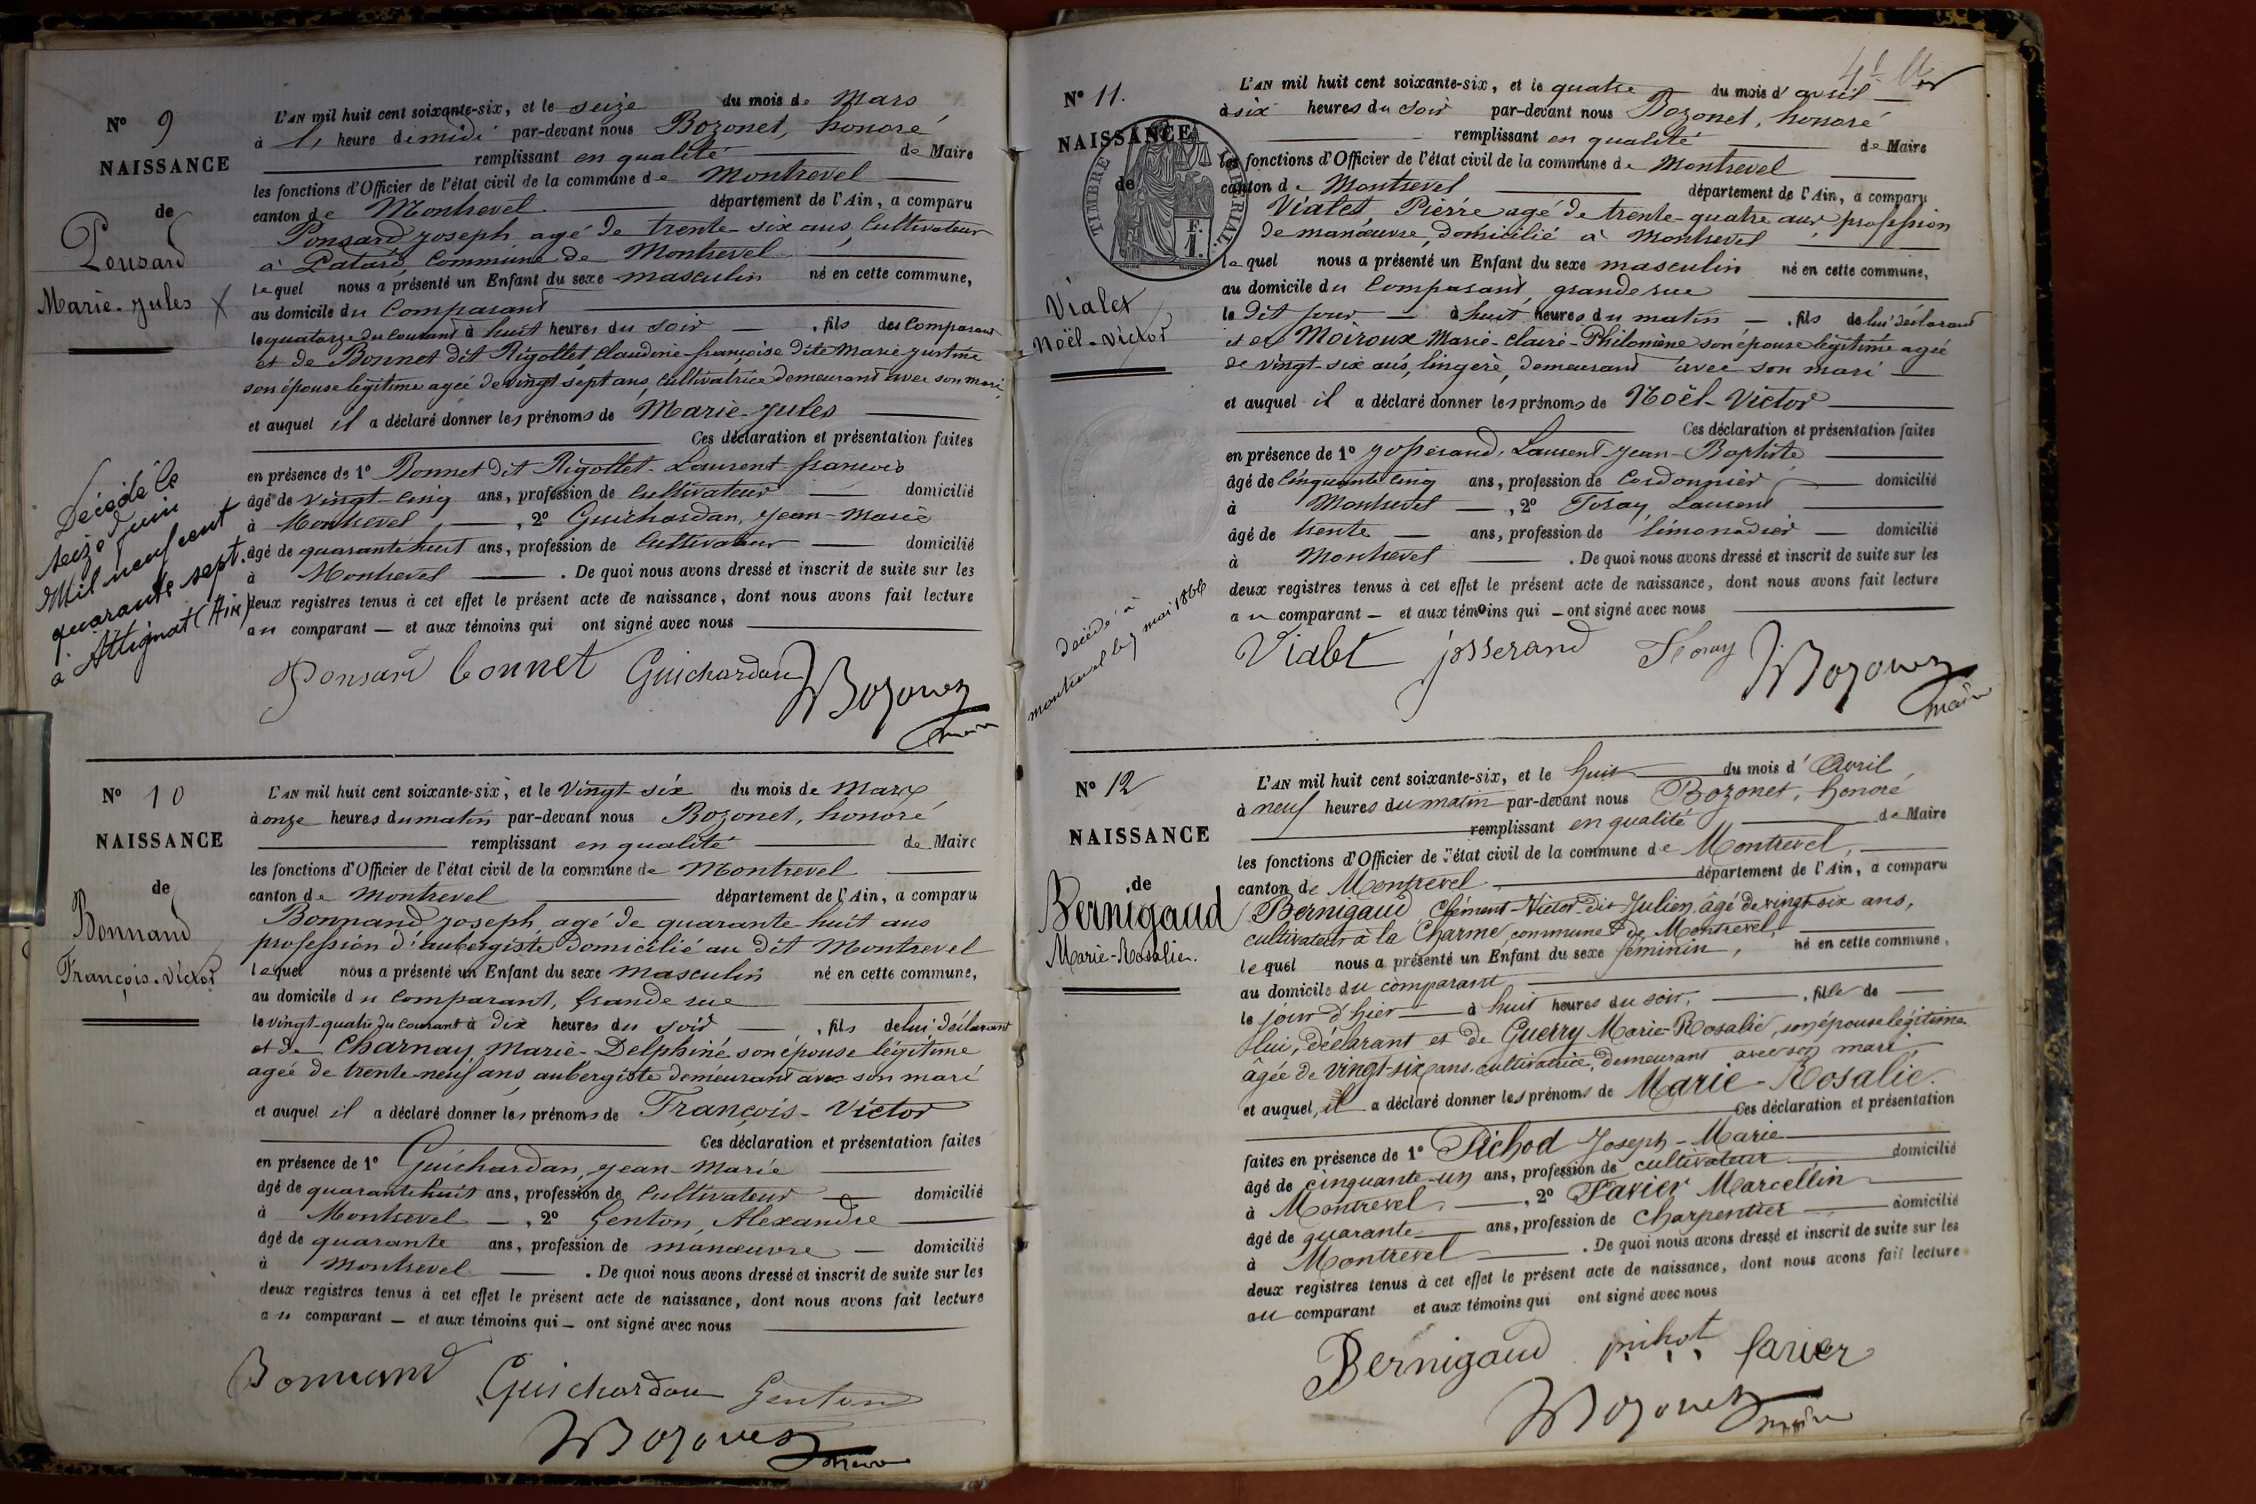 N° 9
NAISSANCE
de
Ponsard
Marie-Jules
L'AN mil huit cent soixante-six, et le seize du mois de Mars
à heure du midi par-devant nous Bozonet, honoré
remplissant en qualité de Maire
les fonctions d'Officier de l'état civil de la commune de Montrevel
canton de Montrevel département de l'Ain, a comparu
Ponsard joseph, agé de trente-six ans, Cultivateur
à commune de Montrevel
lequel nous a présenté un Enfant du sexe masculin né en cette commune,
au domicile du Comparant
le quatorze du Courant à huit heures du soir , fils des Comparant
et de Bonnet dit Rigollet Claudine-françoise dite Marie justine
son épouse légitime agée de vingt sept ans, Cultivatrice demeurant avec son mari,
et auquel il a déclaré donner les prénoms de Marie-Jules
Ces déclaration et présentation faites
en présence de 1° Bonnet dit Rigollet-Laurent-françois
âgé de vingt-cinq ans, profession de Cultivateur domicilié
à Montrevel , 2° Guichardan, Jean-Marie
âgé de quarante huit ans, profession de Cultivateur domicilié
à Montrevel . De quoi nous avons dressé et inscrit de suite sur les
deux registres tenus à cet effet le présent acte de naissance, dont nous avons fait lecture
au comparant et aux témoins qui ont signé avec nous
Décédé le
seize Juin
Mil neuf cent
quarante sept.
à Attignat (Ain)
Ponsard bonnet Guichardan
Bozonet
maire
N° 10
NAISSANCE
de
Bonnand
François-Victor
L'AN mil huit cent soixante-six, et le Vingt-six du mois de Mars
à onze heures du matin par-devant nous Bozonet, honoré
remplissant en qualité de Maire
les fonctions d'Officier de l'état civil de la commune de Montrevel
canton de Montrevel département de l'Ain, a comparu
Bonnand joseph, agé de quarante huit ans
profession d'aubergiste domicilié au dit Montrevel
lequel nous a présenté un Enfant du sexe masculin né en cette commune,
au domicile du comparant, Grande rue
le vingt-quatre du Courant à dix heures du soir , fils de lui déclarant
et de Charnay, Marie-Delphine son épouse légitime
agée de trente-neuf ans, aubergiste demeurant avec son mari
et auquel il a déclaré donner les prénoms de François-Victor
Ces déclaration et présentation faites
en présence de 1° Guichardan, Jean-Marie
âgé de quarante huit ans, profession de Cultivateur domicilié
à Montrevel , 2° Genton, Alexandre
âgé de quarante ans, profession de manœuvre domicilié
à Montrevel . De quoi nous avons dressé et inscrit de suite sur les
deux registres tenus à cet effet le présent acte de naissance, dont nous avons fait lecture
au comparant et aux témoins qui ont signé avec nous
Bonnand Guichardan Genton
Bozonet
maire
N° 11.
NAISSANCE
de
TIMBRE IMPÉRIAL.
F.
1.
Vialet
Noël-Victor
L'AN mil huit cent soixante-six, et le quatre du mois d'avril
à six heures du soir par-devant nous Bozonet, honoré
remplissant en qualité de Maire
les fonctions d'Officier de l'état civil de la commune de Montrevel
canton de Montrevel département de l'Ain, a comparu
Vialet, Pierre agé de trente-quatre ans, profession
de manœuvre, domicilié à Montrevel
lequel nous a présenté un Enfant du sexe masculin né en cette commune,
au domicile du Comparant, grande rue
le dit jour à huit heures du matin , fils de lui déclarant
et de Moiroux Marie-Claire-Philomène son épouse légitime agée
de vingt-six ans, lingère, demeurant avec son mari
et auquel il a déclaré donner les prénoms de Noël-Victor
Ces déclaration et présentation faites
en présence de 1° Josserand, Laurent-Jean-Baptiste
âgé de Cinquante cinq ans, profession de Cordonnier domicilié
à Montrevel , 2° Foray, Laurent
âgé de trente ans, profession de limonadier domicilié
à Montrevel . De quoi nous avons dressé et inscrit de suite sur les
deux registres tenus à cet effet le présent acte de naissance, dont nous avons fait lecture
au comparant et aux témoins qui ont signé avec nous
décédé à
montrevel le mai 1866
Vialet josserand Foray
Bozonet
maire
N° 12
NAISSANCE
de
Bernigaud
Marie-Rosalie.
L'AN mil huit cent soixante-six, et le huit du mois d'Avril
à neuf heures du matin par-devant nous Bozonet, honoré
remplissant en qualité de Maire
les fonctions d'Officier de l'état civil de la commune de Montrevel,
canton de Montrevel département de l'Ain, a comparu
Bernigaud Clément-Victor-dit Julien, âgé de vingt-six ans,
cultivateur à la Charme, commune de Montrevel,
lequel nous a présenté un Enfant du sexe féminin, né en cette commune,
au domicile du comparant
le jour d'hier à huit heures du soir, , fille de
lui, déclarant et de Guerry Marie-Rosalie, son épouse légitime
âgée de vingt-six ans, cultivatrice, demeurant avec son mari,
et auquel, il a déclaré donner les prénoms de Marie-Rosalie.
Ces déclaration et présentation
faites en présence de 1° Pichod Joseph-Marie
âgé de cinquante-un ans, profession de cultivateur domicilié
à Montrevel, , 2° Favier Marcellin
âgé de quarante ans, profession de charpentier domicilié
à Montrevel . De quoi nous avons dressé et inscrit de suite sur les
deux registres tenus à cet effet le présent acte de naissance, dont nous avons fait lecture
au comparant et aux témoins qui ont signé avec nous
Bernigaud pichot favier
Bozonet
maire